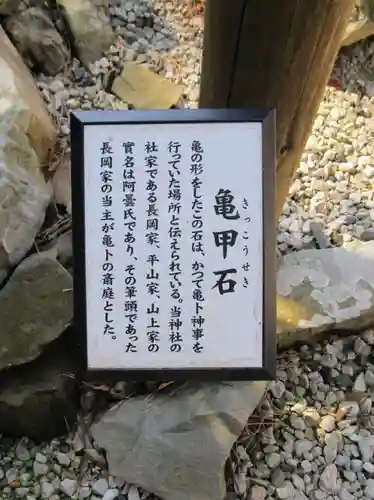 亀甲石
きっこうせき
亀の形をしたこの石は、かつて亀卜神事を
行っていた場所と伝えられている。当神社の
社家である長岡家、平山家、山上家の
實名は阿曇氏であり、その筆頭であった
長岡家の当主が亀卜の斎庭とした。